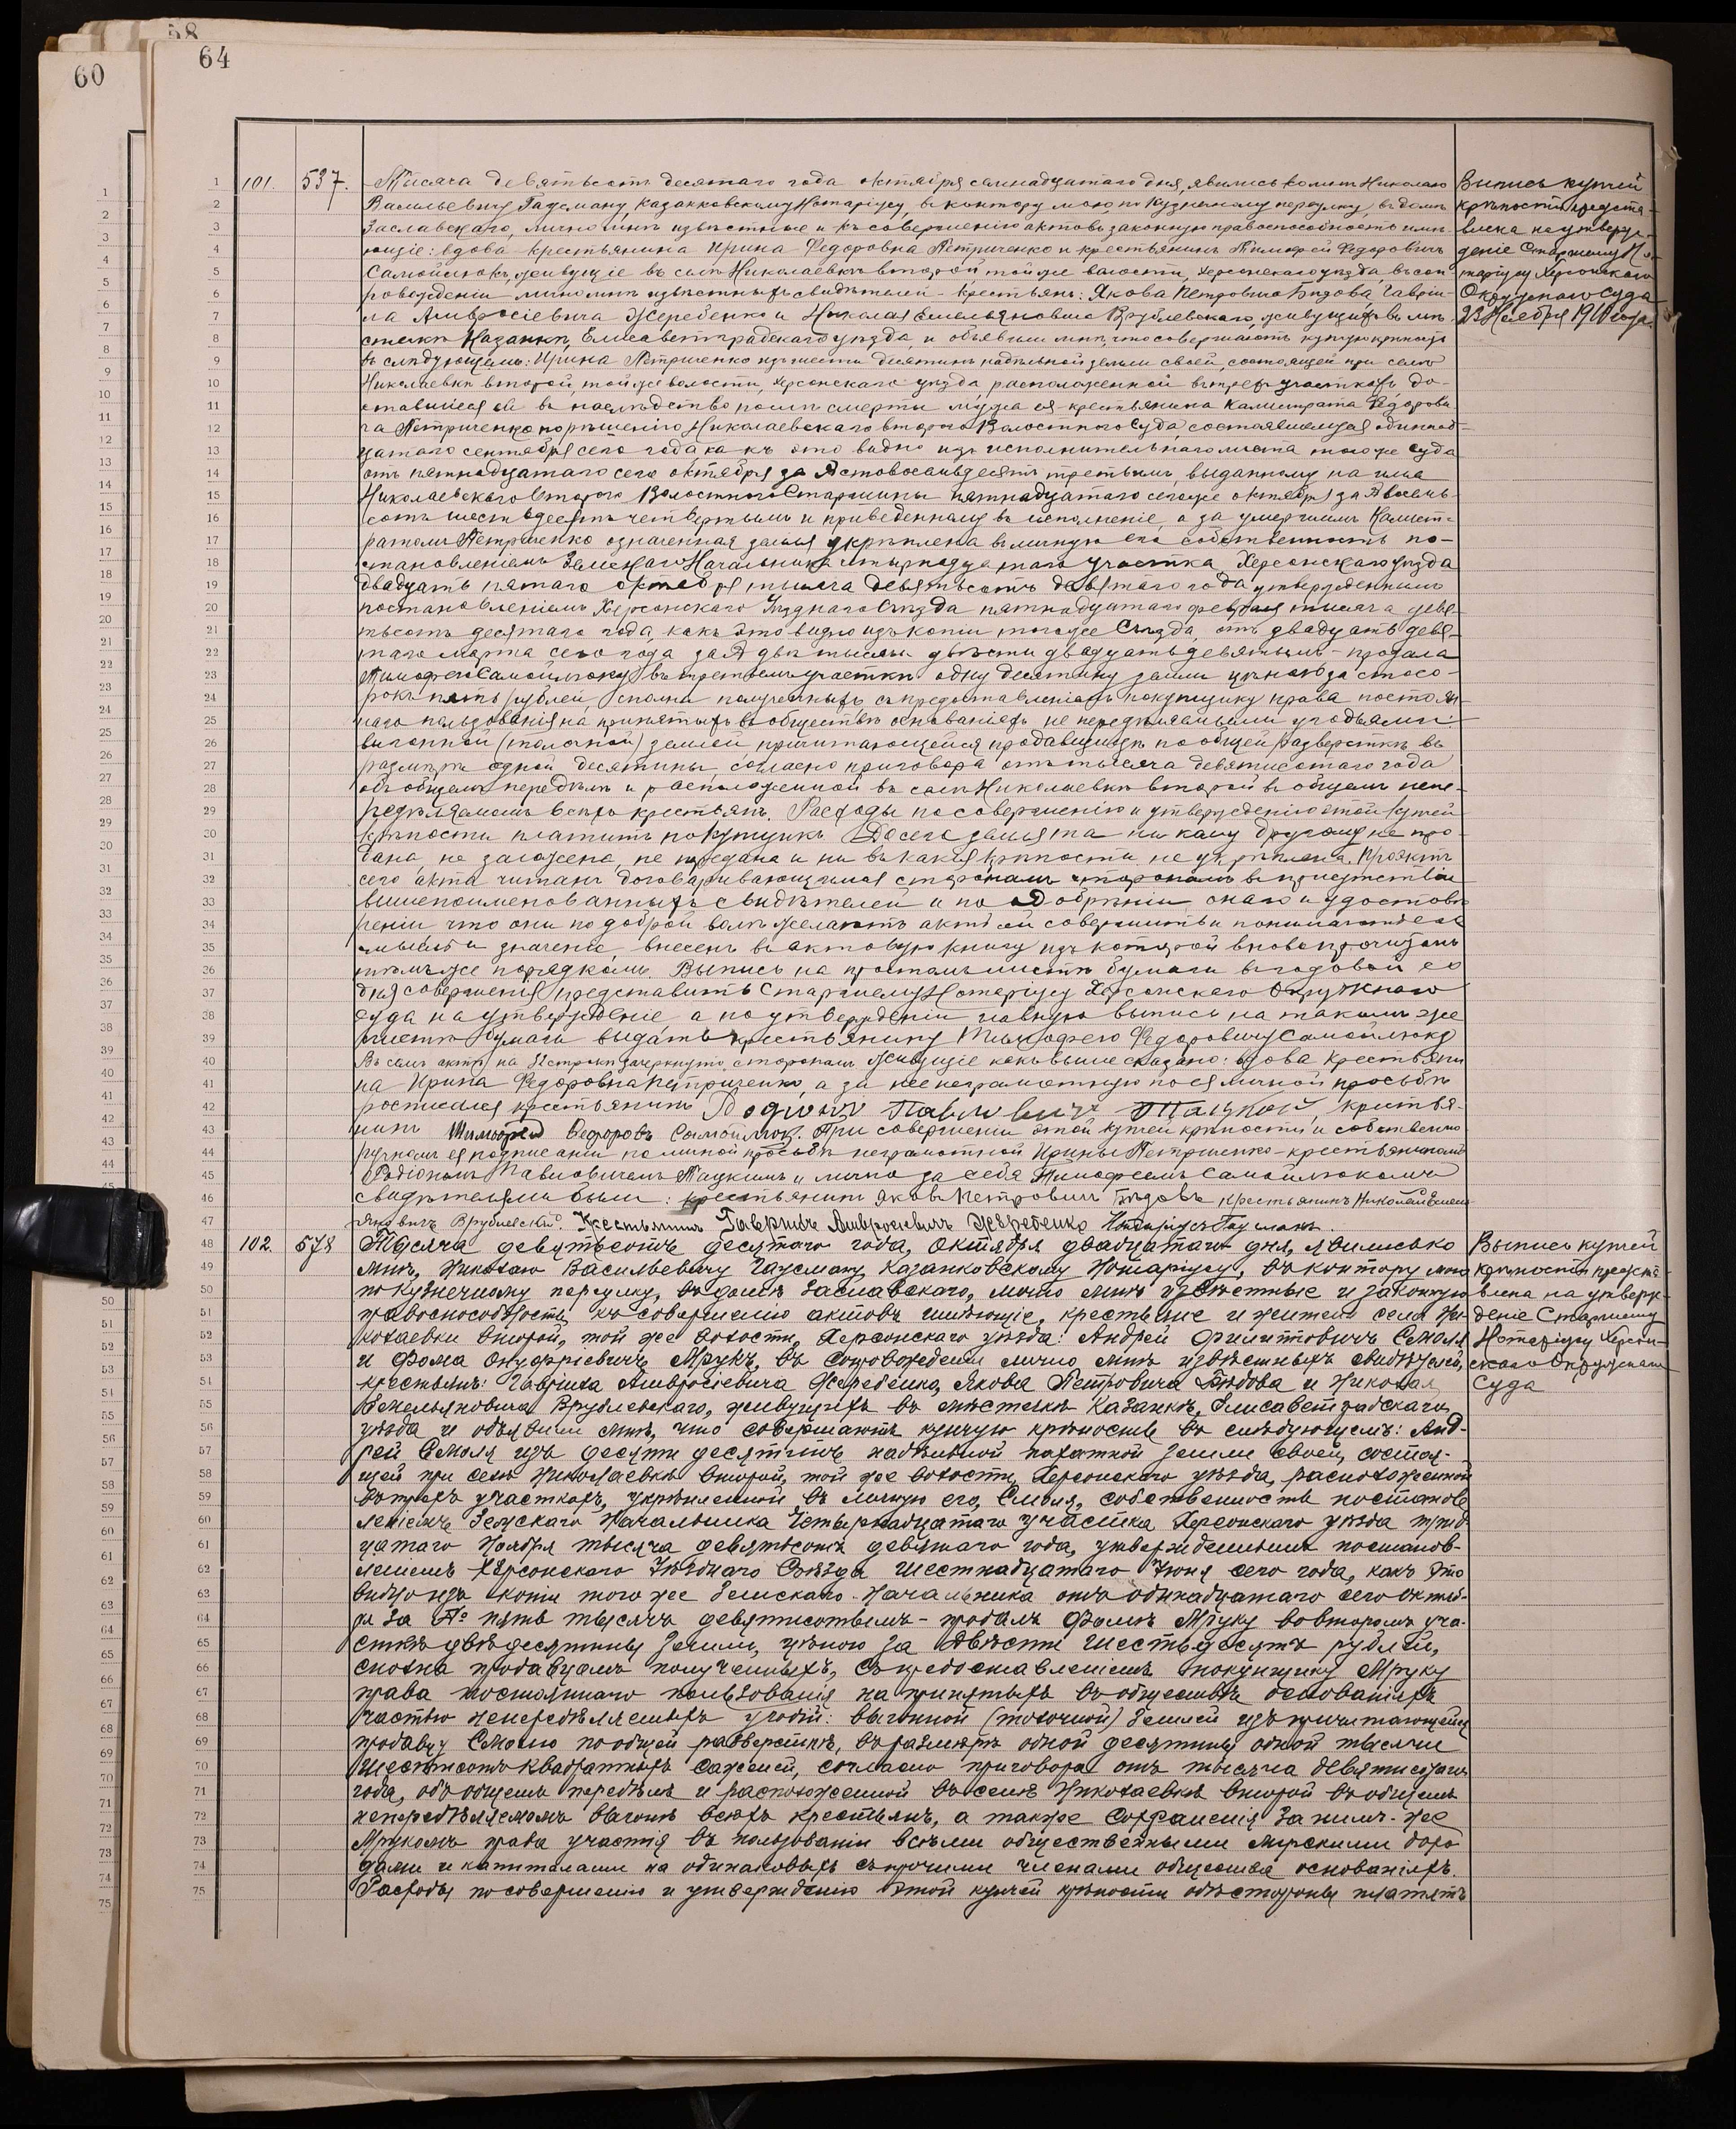 58
60
64
101. 537. Тысяча девятьсотъ десятаго года октября семнадцатаго дня, явились ко мнѣ Николаю
Васильевичу Гаусману, Казанковскому Нотаріусу, въ контору мою, по Кузнечному переулку, въ домѣ
Заславскаго, лично мнѣ извѣстные и къ совершенію актовъ законную правоспособность имѣ-
ющіе: вдова крестьянина Ирина Федоровна Петриченко и крестьянинъ Тимофей Федоровичъ
Самойлюкъ, живущіе въ селѣ Николаевкѣ второй, той же волости, Херсонскаго уѣзда, въ соп-
ровожденіи лично мнѣ извѣстныхъ свидѣтелей - крестьянъ: Якова Петровича Бѣдова, Гавріи-
ла Амвросіевича Жеребенко и Николая Емельяновича Врублевскаго, живущихъ въ мѣ-
стечкѣ Казанкѣ, Елисаветградскаго уѣзда, и объявили мнѣ, что совершаютъ купчую крѣпость
въ слѣдующемъ: Ирина Петриченко изъ шести десятинъ надѣльной земли своей, состоящей при селѣ
Николаевкѣ второй, той же волости, Херсонскаго уѣзда, расположенной въ трехъ участкахъ, до-
ставшейся ей въ наслѣдство послѣ смерти мужа ея - крестьянина Калистрата Федорови-
ча Петриченко по рѣшенію Николаевскаго второго Волостного Суда, состоявшемуся одиннад-
цатаго сентября сего года какъ это видно изъ исполнительнаго листа того же Суда
отъ пятнадцатаго сего октября за № сто восемьдесятъ третьимъ, выданному на имя
Николаевскаго Второго Волостного Старшины пятнадцатаго сего же октября за № восемь-
сотъ шестьдесятъ четвертымъ и приведенному въ исполненіе, а за умершимъ Калист-
ратомъ Петриченко означенная земля укрѣплена въ личную его собственность по-
становленіемъ Земскаго Начальника четырнадцатаго участка, Херсонскаго уѣзда
двадцать пятаго октября тысяча девятьсотъ девятаго года, утвержденнымъ
постановленіемъ Херсонскаго Уѣзднаго Съѣзда пятнадцатаго февраля тысяча девя-
тьсотъ десятаго года, какъ это видно изъ копіи того же Съѣзда, отъ двадцать девя-
таго марта сего года за № двѣ тысячи двѣсти двадцать девятымъ - продала
Тимофею Самойлюку въ третьемъ участкѣ одну десятину земли цѣною за сто со-
рокъ пять рублей, сполна полученныхъ съ предоставленіемъ покупщику права постоян-
наго пользованія на принятыхъ въ обществѣ основаніяхъ не передѣляемыми угодьями:
выгонной (толочной) землей причитающейся продавщицѣ по общей разверсткѣ въ
размѣрѣ одной десятины, согласно приговора отъ тысяча девятисотаго года
объ общемъ передѣлѣ и расположенной въ селѣ Николаевкѣ второй въ общемъ непе-
редѣляемомъ всѣхъ крестьянъ. Расходы по совершенію и утвержденію этой купчей
крѣпости платитъ покупщикъ. До сего земля та ни кому другому не про-
дана, не заложена, не передана и ни въ какія крѣпости не укрѣплена. Проектъ
сего акта читанъ договаривающимся сторонамъ сторонамъ въ присутствіи
вышепоименованныхъ свидѣтелей и по одобреніи онаго и удостовѣ-
реніи что они по доброй волѣ желаютъ актъ сей совершить и понимаютъ его
смыслъ и значеніе, внесенъ въ актовую книгу изъ которой вновь прочитанъ
тѣмъ же порядкомъ. Выпись на простомъ листѣ бумаги въ годовой со
дня совершенія представить Старшему Нотаріусу Херсонскаго Окружного
Суда на утвержденіе, а по утвержденіи главную выпись на такомъ же
листѣ бумаги выдать крестьянину Тимофею Федоровичу Самойлюку
Въ семъ актѣ на 32 строкѣ зачеркнуто, сторонамъ. Живущіе какъ выше сказано: вдова крестьяни-
на Ирина Федоровна Петриченко, а за нее неграмотную по ея личной просьбѣ
росписался крестьянинъ Родіонъ Павловичъ крестья-
нинъ Тимофей Федоровъ Самойлюкъ. При совершеніи этой купчей крѣпости и собственно
ручномъ ея подписаніи по личной просьбѣ неграмотной Ирины Петриченко - крестьяниномъ
Родіономъ Павловичемъ и лично за себя Тимофеемъ Самойлюкомъ
свидѣтелями были: крестьянинъ Яковъ Петровичъ Бѣдовъ крестьянинъ Николай Емель-
яновичъ Врублевскій. Крестьянинъ Гавріилъ Амвросіевичъ Жеребенко Нотаріусъ Гаусманъ.
Выпись купчей
крѣпости предста-
влена на утверж-
деніе Старшему Но-
таріусу Херсонскаго
Окружного Суда
23 Ноября 1910 года.
102. 578 Тысяча девятьсотъ десятаго года, октября двадцатаго дня, явились ко
мнѣ, Николаю Васильевичу Гаусману, Казанковскому Нотаріусу, въ контору мою
по Кузнечному переулку, въ домѣ Заславскаго, лично мнѣ извѣстные и законную
правоспособность къ совершенію актовъ имѣющіе, крестьяне и жители села Ни-
колаевки второй, той же волости, Херсонскаго уѣзда: Андрей Филипповичъ Смоля
и Фома Онуфріевичъ Мрукъ, въ сопровожденіи лично мнѣ извѣстныхъ свидѣтелей,
крестьянъ: Гавріила Амвросіевича Жеребенко, Якова Петровича Бѣдова и Николая
Емельяновича Врублевскаго, живущихъ въ мѣстечкѣ Казанкѣ, Елисаветградскаго
уѣзда и объявили мнѣ, что совершаютъ купчую крѣпость въ слѣдующемъ: Анд-
рей Смоля изъ десяти десятинъ надѣльной пахатной земли своей, состоя-
щей при селѣ Николаевкѣ второй, той же волости, Херсонскаго уѣзда, расположенной
въ трехъ участкахъ, укрѣпленной въ личную его, Смоля, собственность постанов-
леніемъ Земскаго Начальника Четырнадцатаго участка Херсонскаго уѣзда трид-
цатаго Ноября тысяча девятьсотъ девятаго года, утвержденнымъ постанов-
леніемъ Херсонскаго Уѣзднаго Съѣзда шестнадцатаго Іюня сего года, какъ это
видно изъ копіи того же Земскаго Начальника отъ одинадцатаго сего октяб-
ря за № пять тысячъ девятисотымъ - продалъ Фомѣ Мруку во второмъ уча-
сткѣ двѣ десятины земли, цѣною за двѣсти шестьдесятъ рублей,
сполна продавцомъ полученныхъ, съ предоставленіемъ покупщику Мруку
права постояннаго пользованія на принятыхъ въ обществѣ основаніяхъ
частью непередѣляемыхъ угодій: выгонной (толочной) землей изъ причитающейся
продавцу Смолю по общей разверсткѣ, въ размѣрѣ одной десятины одной тысячи
шестисотъ квадратныхъ саженей, согласно приговора отъ тысяча девятисотаго
года, объ общемъ передѣлѣ и расположенной въ селѣ Николаевкѣ второй въ общемъ
непередѣляемомъ выгонѣ всѣхъ крестьянъ, а также сохраненія за нимъ же
Мрукомъ права участія въ пользованіи всѣми общественными мірскими дохо-
дами и капиталами на одинаковыхъ съ прочими членами общества основаніяхъ.
Расходы по совершенію и утвержденію этой купчей крѣпости обѣ стороны платятъ
Выпись купчей
крѣпости предста-
влена на утверж-
деніе Старшему
Нотаріусу Херсон-
скаго Окружнаго
Суда